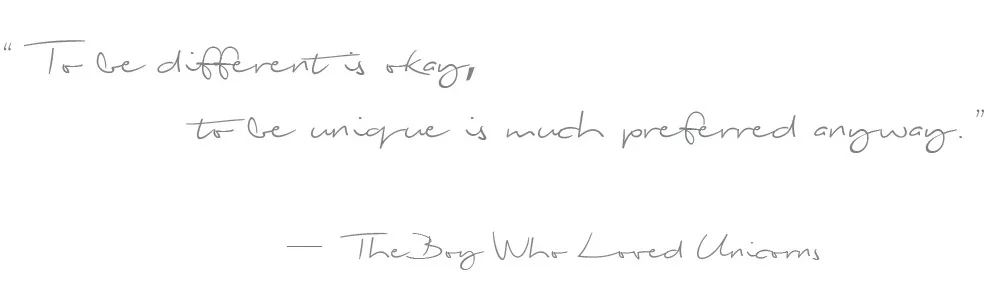 “To be different is okay,
to be unique is much preferred anyway.”
— The Boy Who Loved Unicorns